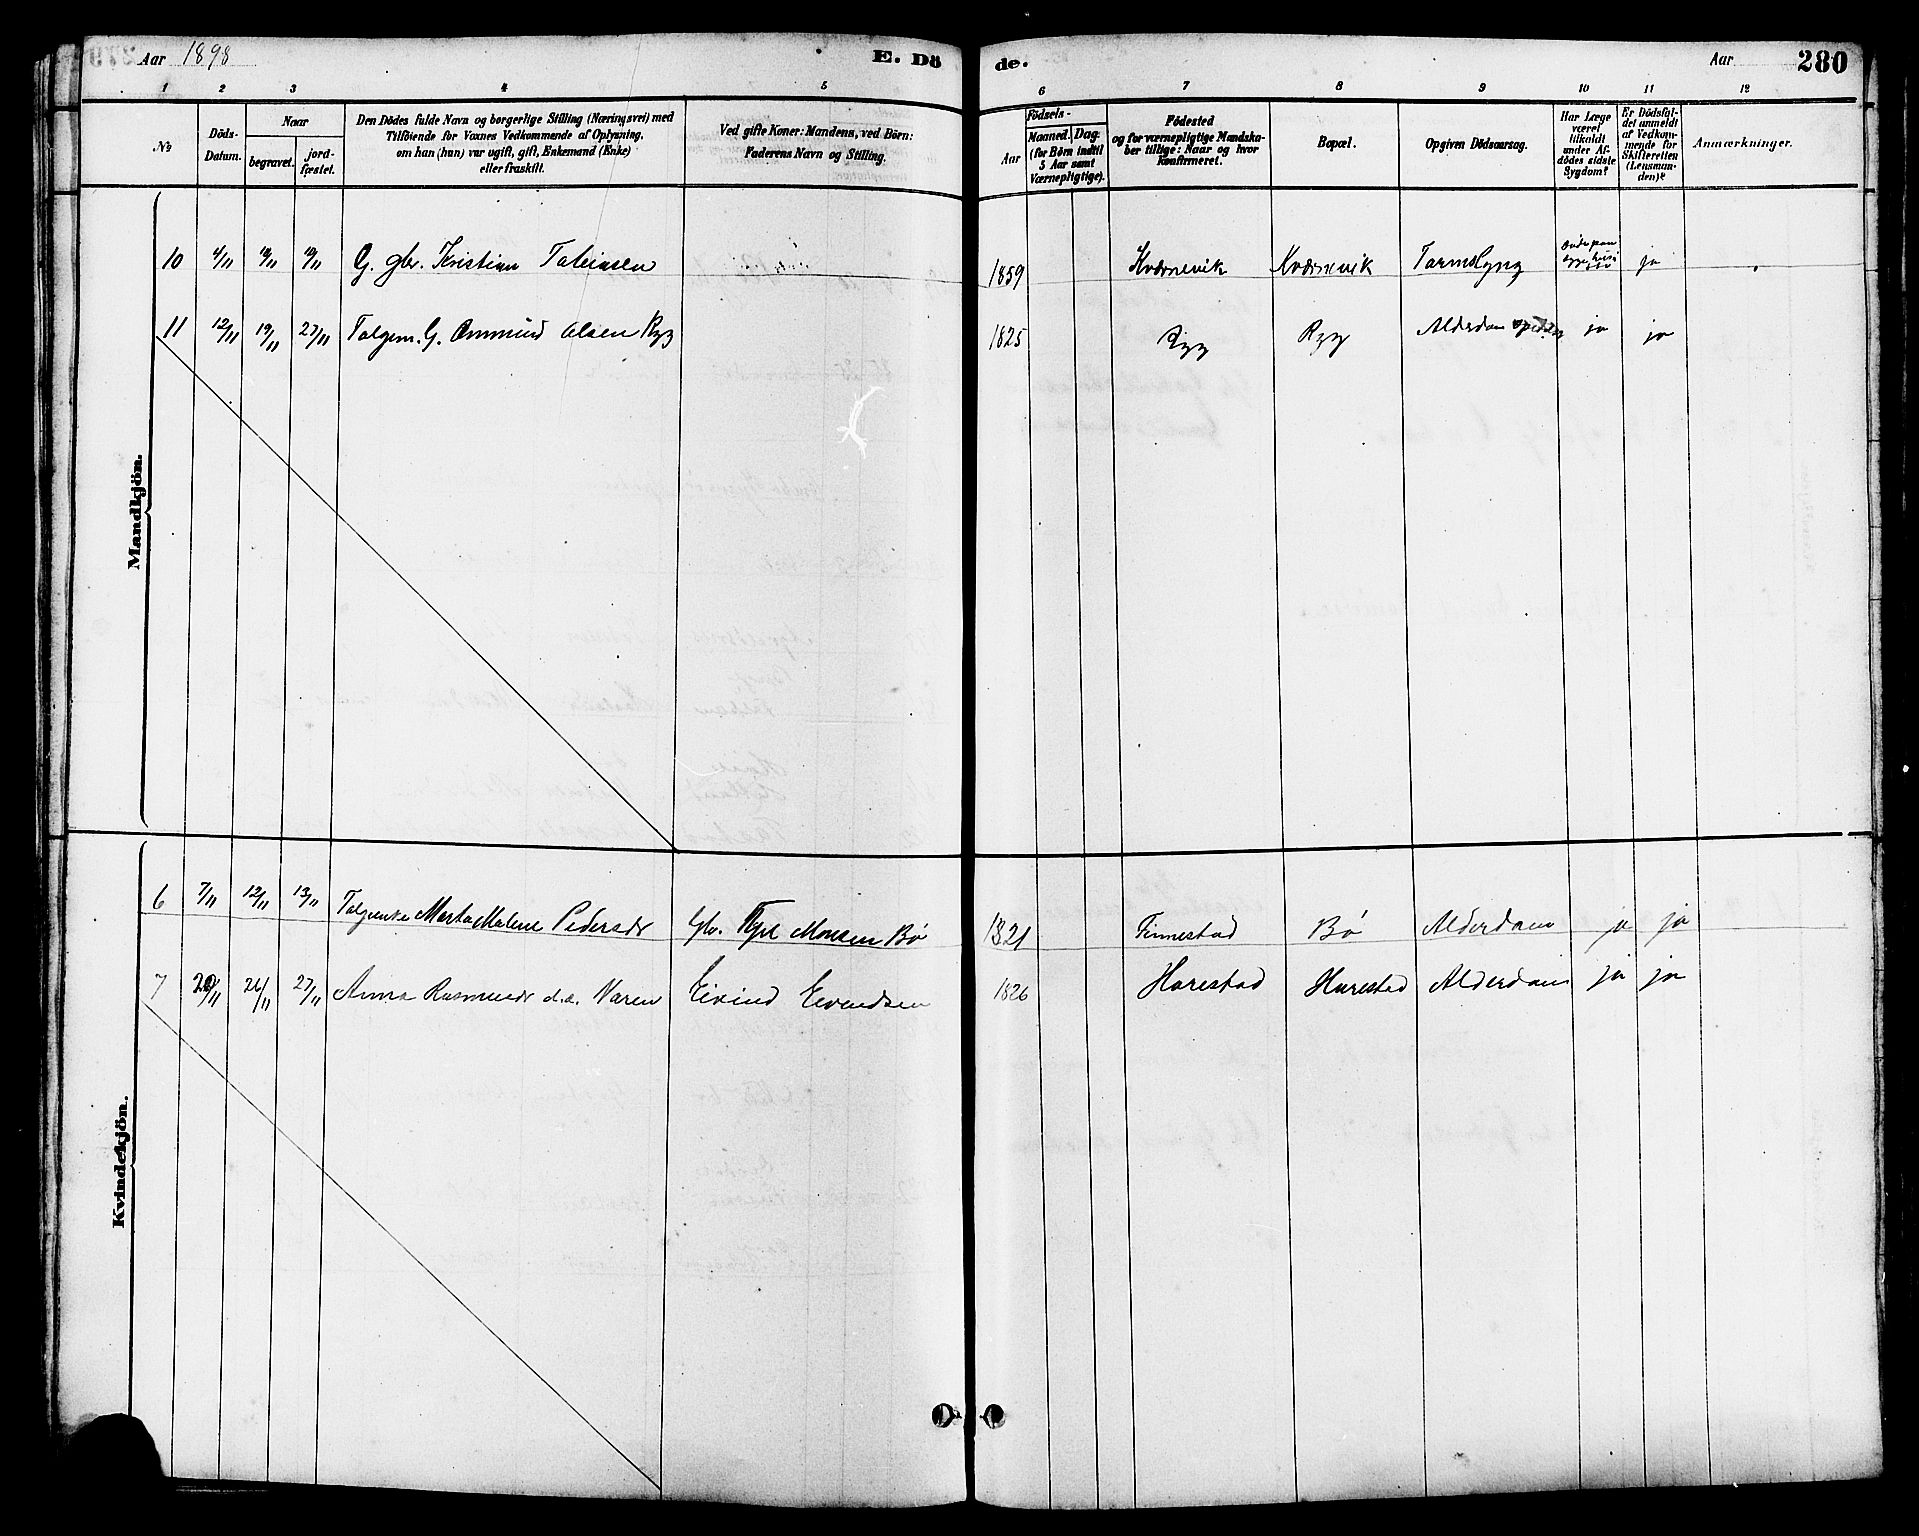 Aar 1898
E. Dö
de.
Aar
280
1 2 3 4 5 6 7 8 9 10 11 12
No
Döds-
Datum.
Naar
begravet.
jord-
fæstet.
Den Dödes fulde Navn og borgerlige Stilling (Næringsvei) med
Tilföiende for Voxnes Vedkommende af Oplysning,
om han (hun) var ugift, gift, Enkemand (Enke)
eller fraskilt.
Ved gifte Koner: Mandens, ved Börn:
Faderens Navn og Stilling.
Födsels-
Aar
Maaned. Dag.
(for Börn indtil
5 Aar samt
Værnepligtige).
Födested
og for værnepligtige Mandska-
ber tillige: Naar og hvor
konfirmeret.
Bopæl.
Opgiven Dödsaarsag.
Har Læge
været
tilkaldt
under Af-
dödes sidste
Sygdom?
Er Dödsfal-
det anmeldt
af Vedkom-
mende for
Skifteretten
(Lensman-
den)?
Anmærkninger.
Mandkjön.
10 4/11 10/11 10/11 G. gbr. Kristian Tobiasen 1859 Kvernevik Kvernevik Tarmslyng ja
11 12/11 19/11 27/11 Folgem. G. Ommund Olsen Ryg 1825 Ryg Ryg Alderdom ja ja
Kvindekjön.
6 7/11 12/11 13/11 Marta Malene Pedersdr Gbr. Kjel Monsen Bø 1821 Finnestad Bø Alderdom ja ja
7 20/11 26/11 27/11 Anna Rasmusdr d.e. Varen Eivind Eivendsen 1826 Harestad Harestad Alderdom ja ja